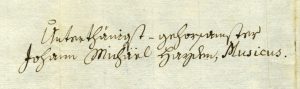 Unterthänigst-gehorsamster
Johann Michäel Haydn, Musicus.